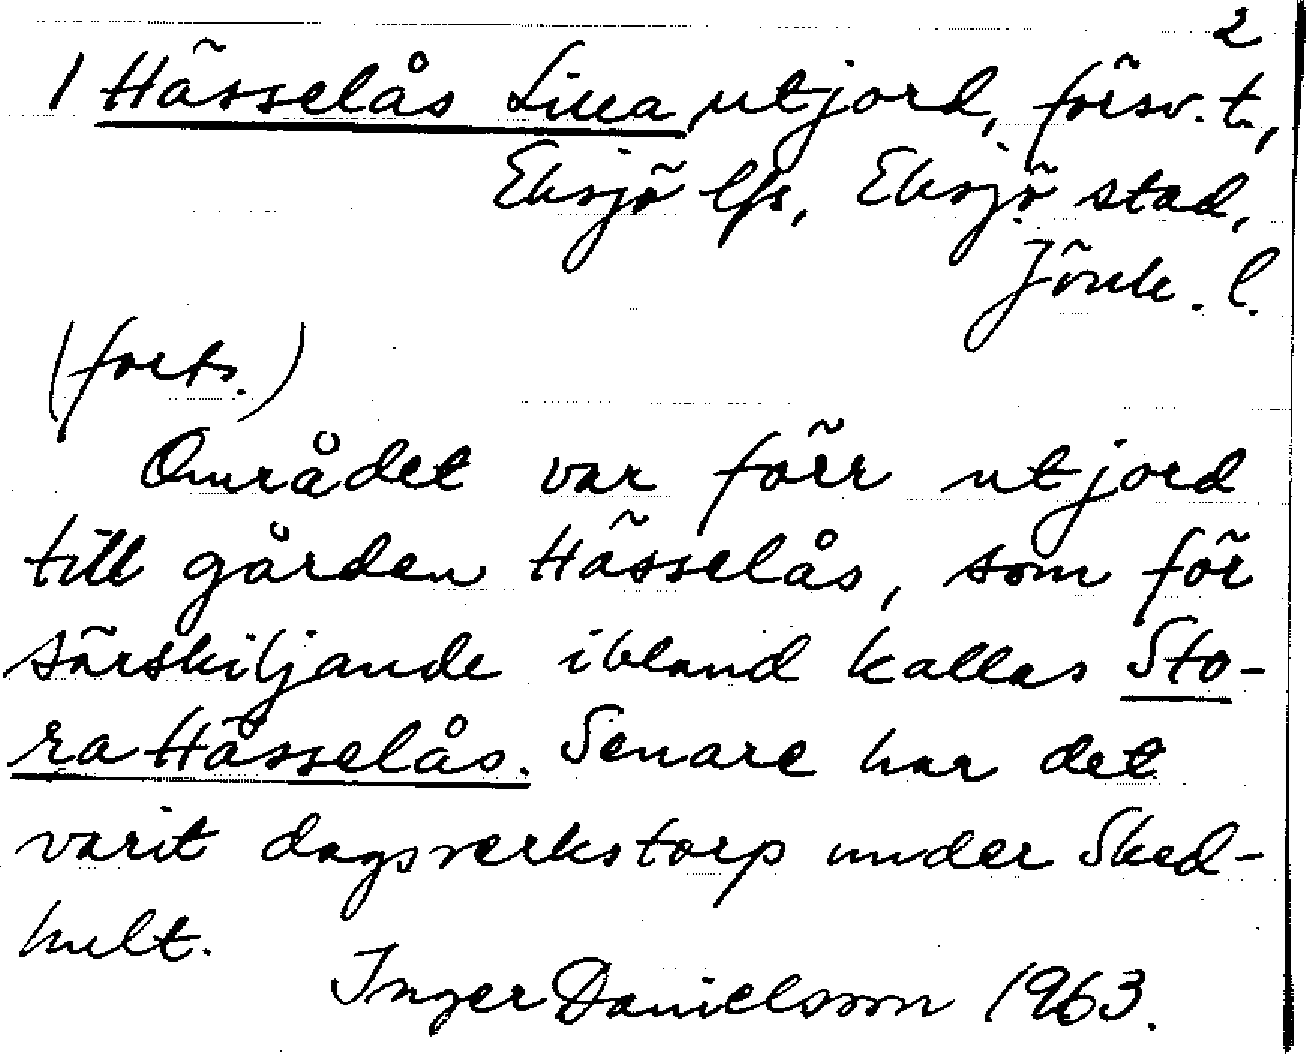 2
1 Hässelås Lilla utjord, försv. t.,
Eksjö lfs, Eksjö stad,
Jönk. l.
(forts.)
Området var förr utjord
till gården Hässelås, som för
särskiljande ibland kallas Sto-
ra Hässelås. Senare har det
varit dagsverkstorp under Sked-
hult.
Inger Danielsson 1963.